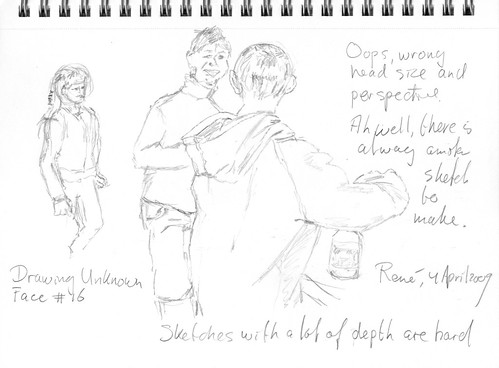 Oops, wrong
head size and
perspective.
Ah well, there is
always
sketch
to
make.
Drawing Unknown
Face #16
René, 4 April 2009
Sketches with a lot of depth are hard